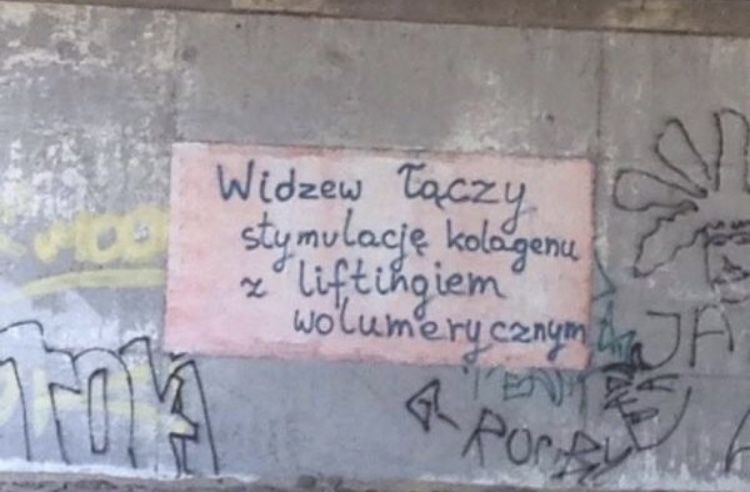 Widzew łączy
stymulację kolagenu
z liftingiem
wolumerycznym
TOK
JA